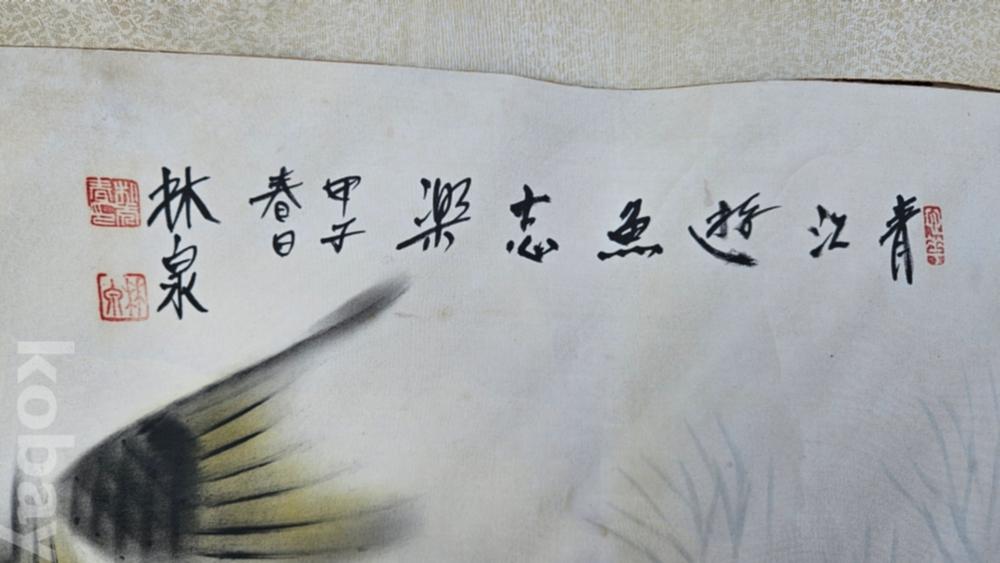 青江游魚志樂
甲子
春日
林泉
kobay